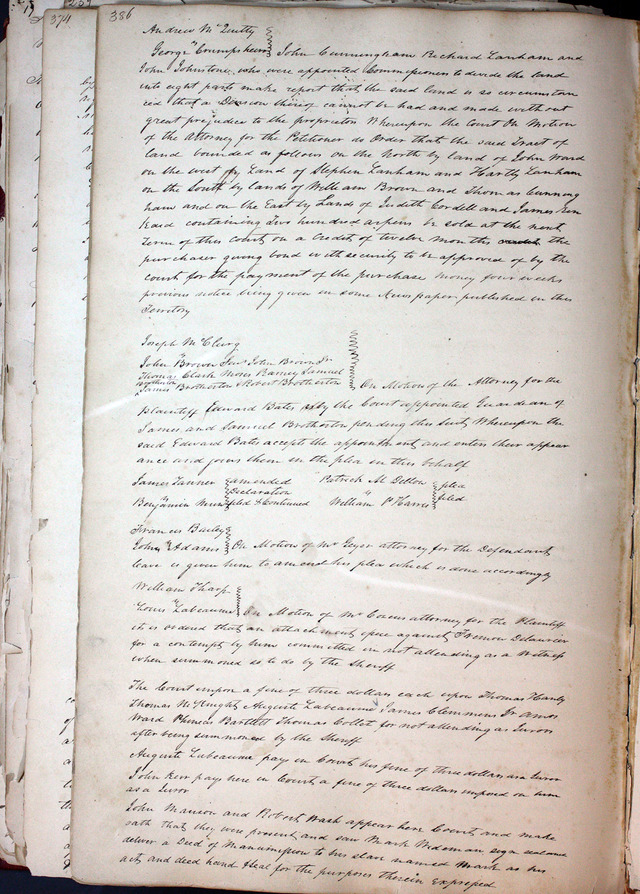 374
386
Andrew McQuitty
vs
George Crumpsheim John Cunningham Richard Lanham and
John Johnstone, who were appointed Commissioners to divide the land
into eight parts make report that the said land is so circumstan
ced that a Division thereof cannot be had and made without
great prejudice to the proprietors Whereupon the Court On Motion
of the Attorney for the Petitioner do Order that the said Tract of
land bounded as follows on the North by land of John Ward
on the West by Land of Stephen Lanham and Hartly Lanham
on the South by lands of William Brown and Thomas Cunning
ham and on the East by Lands of Judith Cordell and James Kin
kead containing Two hundred arpens be sold at the next
Term of this court on a Credit of twelve Months the
purchaser giving bond with security to be approved of by the
court for the payment of the purchase money four weeks
previous notice being given in some Newspaper published in this
Territory
Joseph McClurg
vs
John Brown Senr John Brown Jr
Thomas Clark Moses Ramey Samuel
Brotherton
James Brotherton & Robert Brotherton On Motion of the Attorney for the
Plaintiff Edward Bates is by the Court appointed Guardian of
James and Samuel Brotherton pending this Suit Whereupon the
said Edward Bates accepts the appointment and enters their appear
ance and joins them in the plea in this behalf
James Tanner amended Patrick M Dillon plea
vs Declaration vs filed
Benjamin filed & Continued William P Harris
Francis Bailey
vs
John Adams On Motion of Mr Geyer attorney for the Defendant
leave is given him to amend his plea which is done accordingly
William Tharp
vs
Louis Labeaume On Motion of Mr attorney for the Plaintiff
it is ordered that an attachment issue against Delaurier
for a contempt by him committed in not attending as a Witness
when summoned so to do by the Sheriff
The Court impose a fine of three dollars each upon Thomas Hanly
Thomas McKnight, Auguste Labeaume, James Clemmens Jr Amos
Ward Phineas Bartlett Thomas Collet, for not attending as Jurors
after being summoned by the Sheriff
Auguste Labeaume pay in Court his fine of three dollars as a Juror
John Kerr pay here in Court a fine of three dollars imposed on him
as a Juror
John Manson and Robert Wash appear here Court and make
oath that they were present and saw Mark Wideman sign seal and
deliver a Deed of Manumission to his slave named Mark as his
act and deed hand & seal for the purposes therein expressed